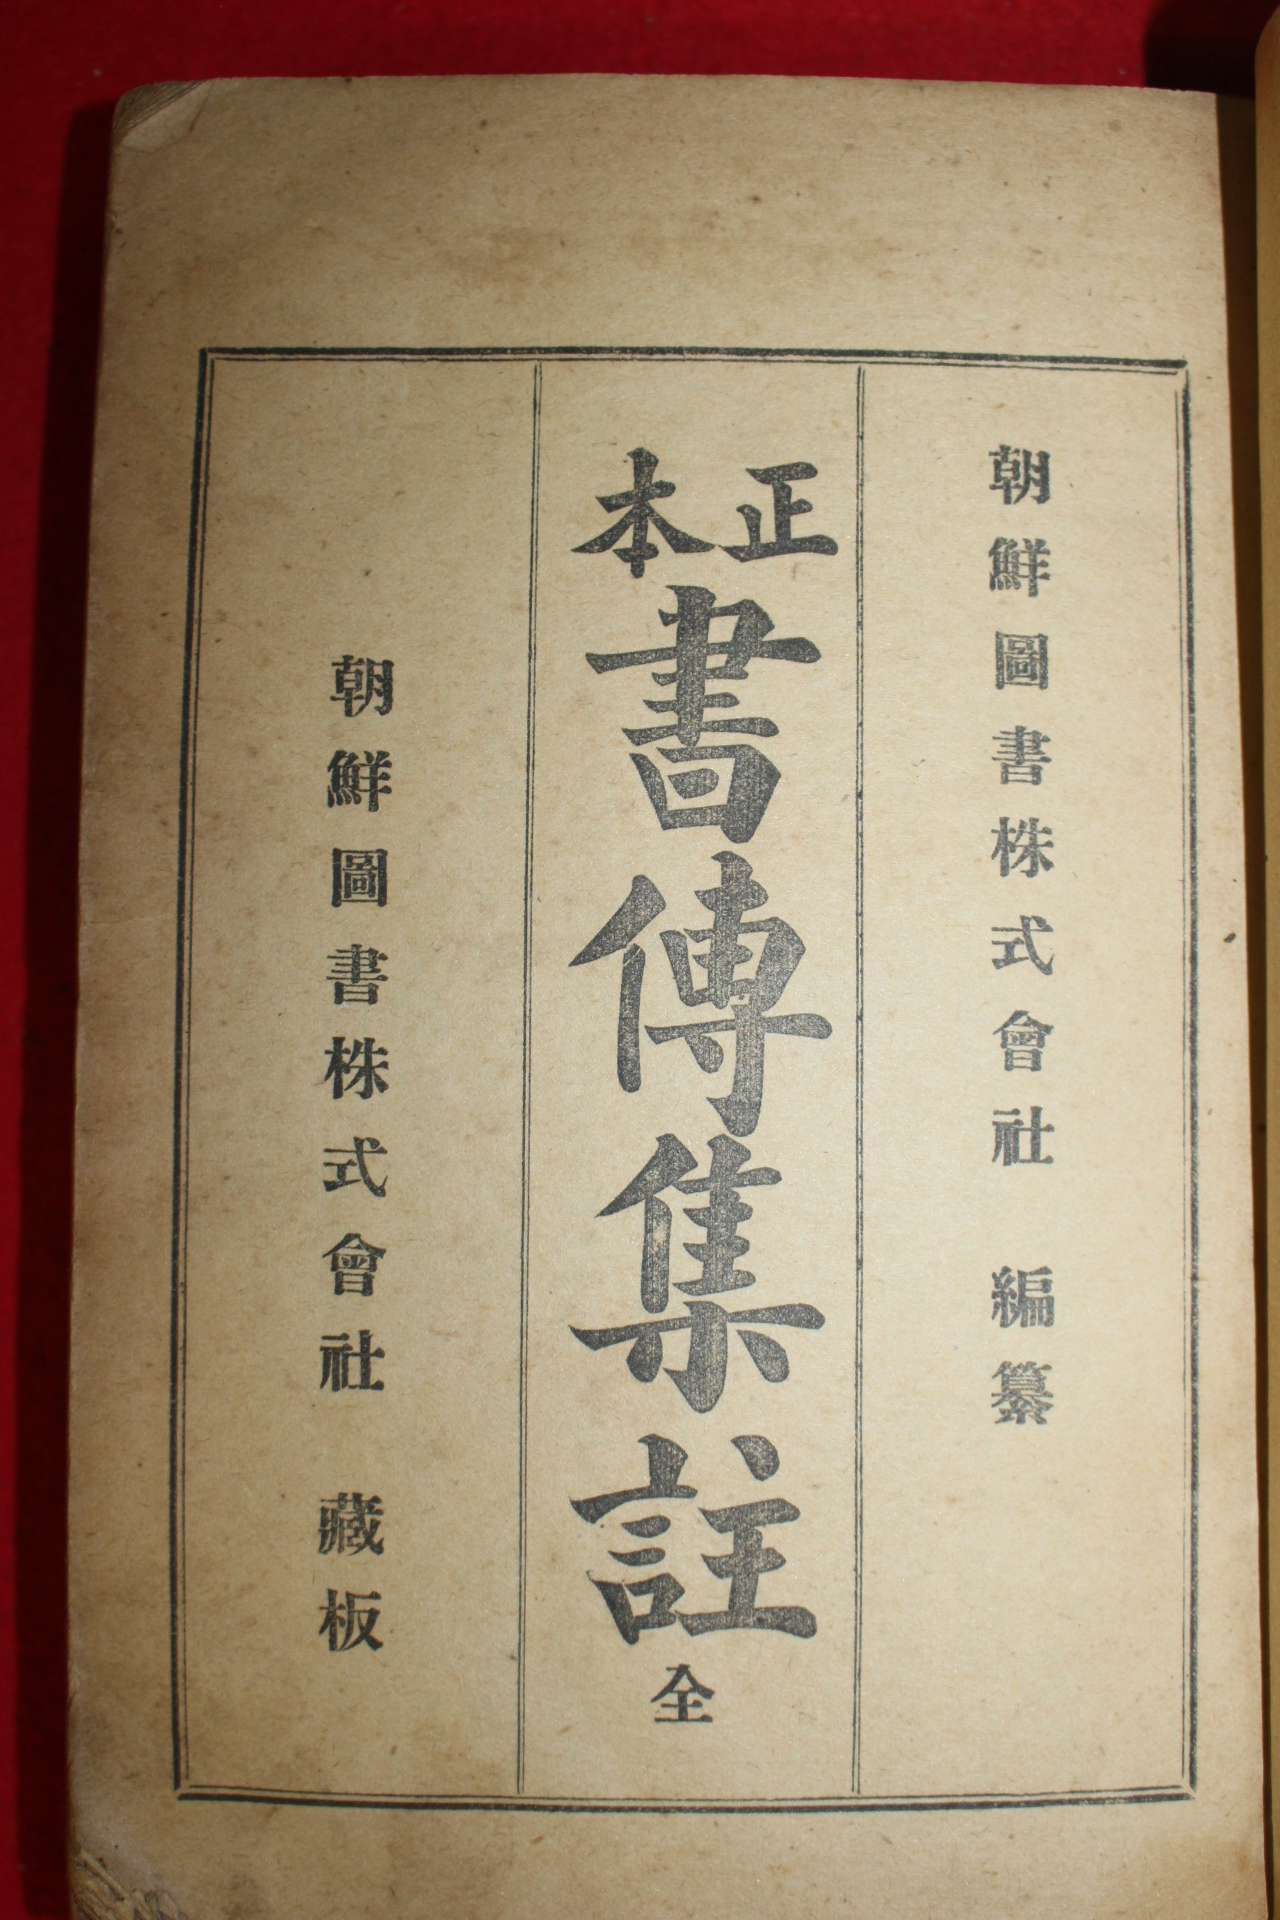 朝鮮圖書株式會社 編纂
正本
書傳集註 全
朝鮮圖書株式會社 藏板